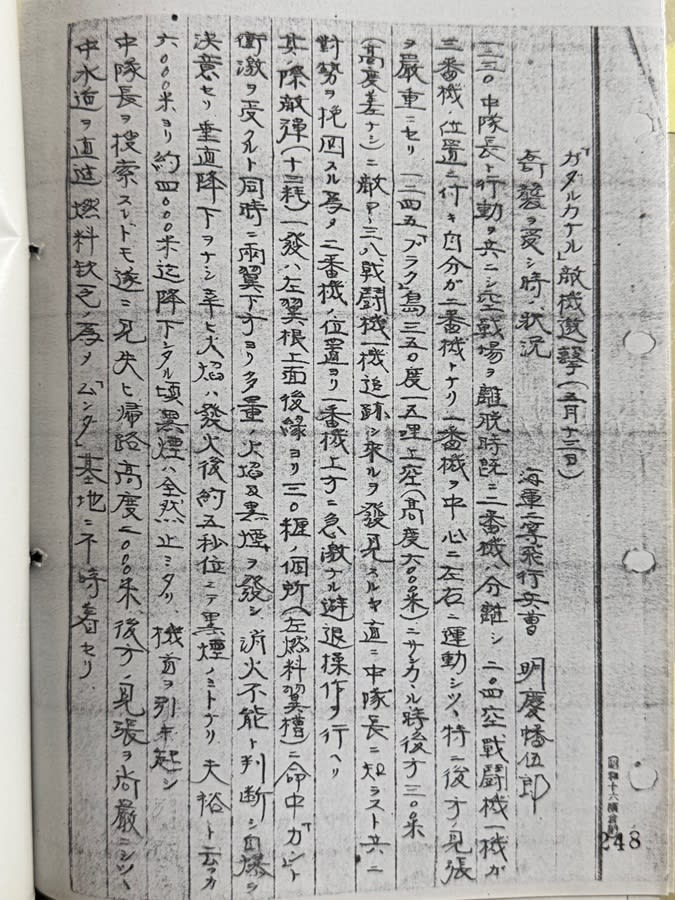 「ガダルカナル」敵機邀撃(五月十三日)
被発ヲ受シ時ノ状況
海軍二等飛行兵曹 明慶幡伍郎
一二三〇中隊長ト行動ヲ共ニシ空戦場ヲ離脱時既ニ二番機ハ分離シ二〇四空戦闘機一機ガ
三番機ノ位置ニ付キ自分ガ二番機トナリ一番機ヲ中心ニ左右ニ運動シツヽ特ニ後方ノ見張
ヲ厳重ニセリ一二四五「ブラク」島三五〇度一五浬上空(高度六〇〇〇米)ニサシカヽル時後方三〇〇米
(高度差ナシ)ニ敵P-三八戦闘機一機追跡シ来ルヲ発見スルヤ直ニ中隊長ニ知ラスト共ニ
対勢ヲ挽回スル為メ二番機ノ位置ヨリ一番機上方ニ急激ナル避退操作ヲ行ヘリ
其ノ際敵弾(十三粍)一発ハ左翼根上面後縁ヨリ三〇糎ノ個所(左燃料翼槽)ニ命中「ガン」ト
衝激ヲ受クルト同時ニ両翼下方ヨリ多量ノ火焔及黒煙ヲ発シ消火不能ト判断シ自爆ヲ
決意セリ垂直降下ヲナシ幸ヒ火焔ハ発火後約五秒位ニテ黒煙ノミトナリ
六〇〇〇米ヨリ約四〇〇〇米迄降下シタル頃黒煙ハ全然止ミタリ 機首ヲ引キ起シ
中隊長ヲ捜索スレドモ遂ニ見失ヒ帰路高度二〇〇〇米、後方ノ見張ヲ尚厳ニシツヽ
中水道ヲ直進燃料欠乏ノ為メ「ムンダ」基地ニ不時着セリ
248